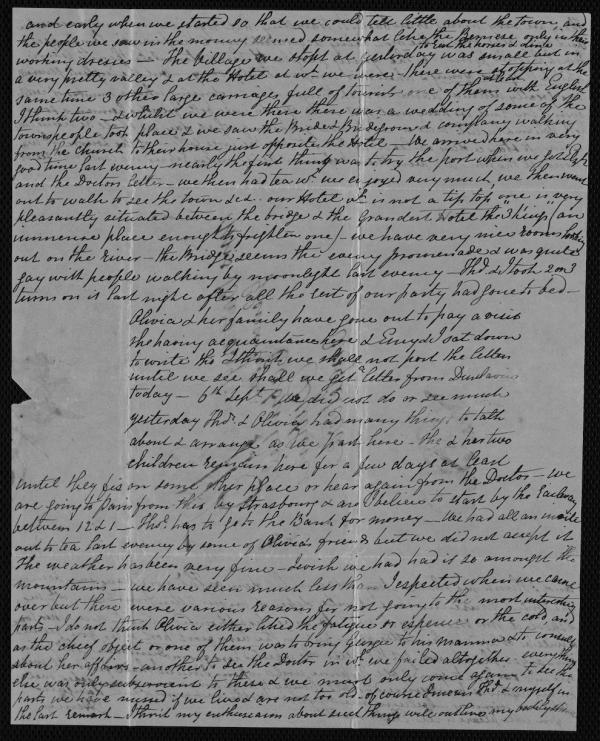 and early when we started so that we could tell little about the town, and
the people we saw in the morning seemed somewhat like the Bernese only in their
working dresses — The village we stopt at yesterday was small but in
to rest the horses & dine
a very pretty valley & at the Hotel at wh. we were there were stopping at the
same time 3 other large carriages full of tourists one of them with English
I think two — & whilst we were there there was a wedding of some of the
townspeople took place & we saw the Bride & Bridegroom & company walking
from the Church to their house just opposite the Hotel — We arrived here in very
good time last evening — nearly the first thing was to try the post when we got
and the Doctors letter — we then had tea wh. we enjoyed very much, we then went
out to walk to see the town &c. our Hotel wh. is not a tip top "one" is very
pleasantly situated between the bridge & the grandest Hotel the 3 Kings (an
immense place enough to frighten one) — we have very nice rooms looking
out on the river — the Bridge seems the evening promenade & was quite
gay with people walking by moonlight last evening — Thos. & I took 2 or 3
turns on it last night after all the rest of our party had gone to bed —
Olivia & her family have gone out to pay a visit
she having acquaintance here & Emy & I sat down
to write tho I think we shall not post the letters
until we see shall we get a letter from
today — 6th Sept. We did not do or see much
yesterday Thos. & Olivia had many things to talk
about & arrange as we part here — She & her two
children remain here for a few days at least
until they fix on some other place or hear again from the Doctor — We
are going to Paris from this by Strasbourg & are I believe to start by the Railway
between 12 & 1 — Thos. has to go to the Bank for money — We had all an invite
out to tea last evening by some of Olivia's friends but we did not accept it
The weather has been very fine — I wish we had had it so amongst the
mountains — we have seen much less than I expected when we came
over but there were various reasons for not going to the most interesting
parts — I do not think Olivia either liked the fatigue or expense or the cold and
as the chief object or one of them was to bring Georgie to his mamma & to consult
about her affairs — another to see the Doctor in wh. we failed altogether everything
else was only subservient to these & we must only come again to see the
parts we have missed if we live & are not too old — of course I mean Thos. & myself in
the last remark — I think my enthusiasm about such things will outlive my bodily